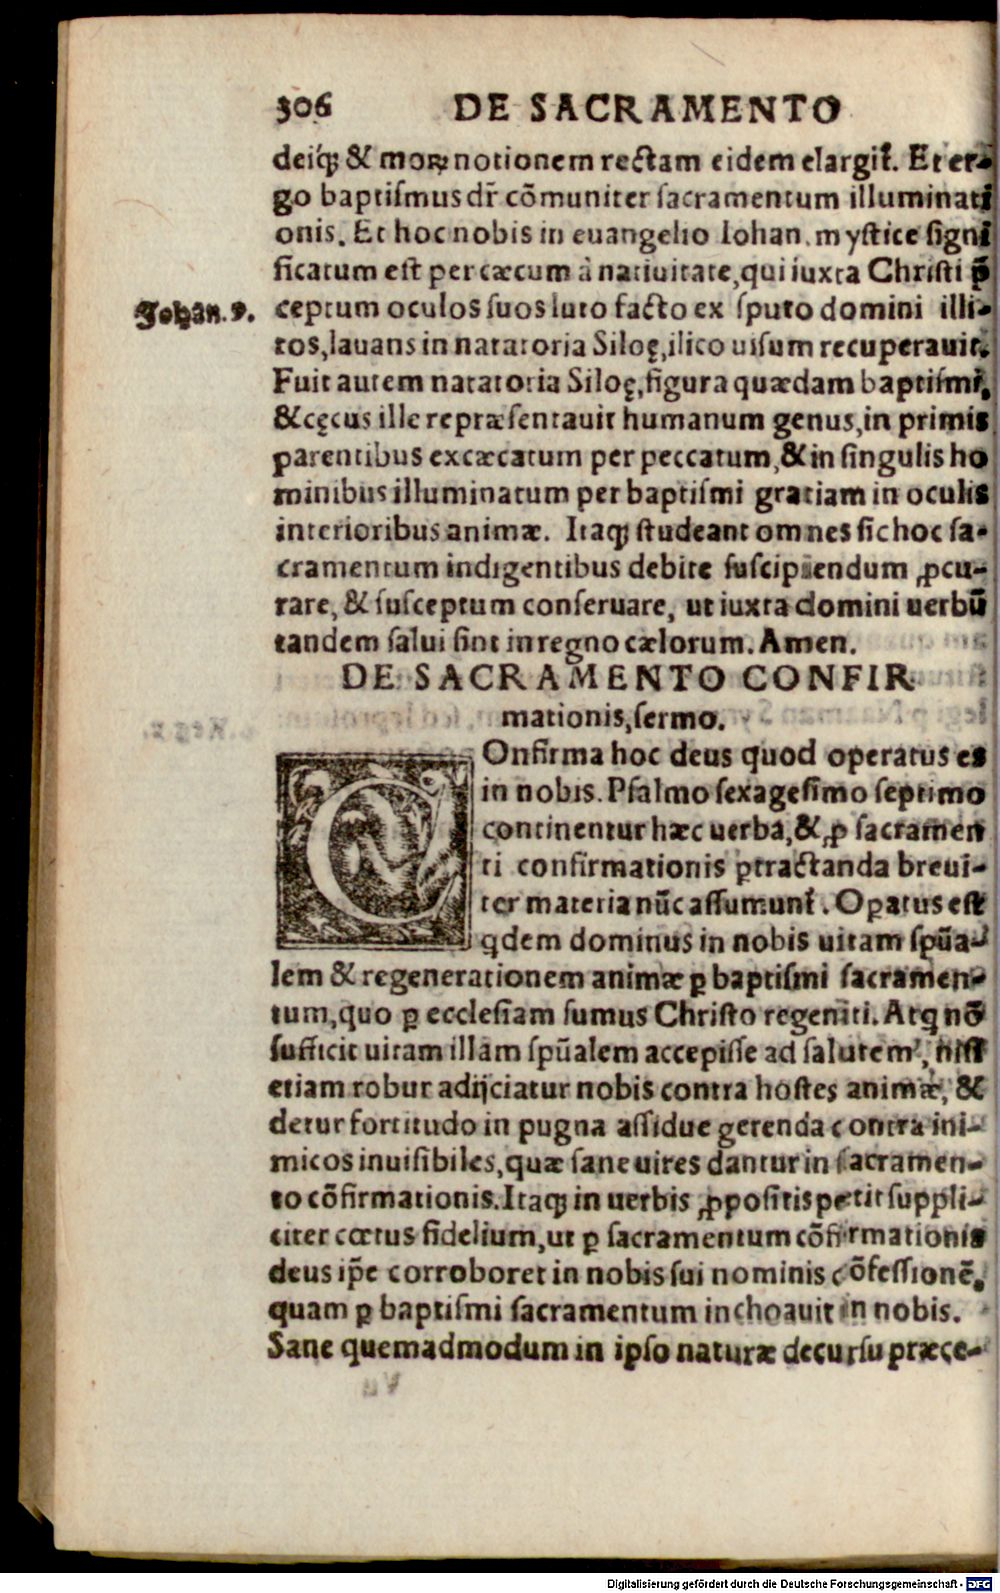 306 DE SACRAMENTO
deiq́ꝫ & moꝝ notionem rectam eidem elargit᷑. Et er-
go baptiſmus dr̃ cõmuniter ſacramentum illuminati
onis. Et hoc nobis in euangelio Iohan. myſtice ſigni
ficatum eſt per cæcum à natiuitate, qui iuxta Chriſti p̃
Johan. 9.
ceptum oculos ſuos luto facto ex ſputo domini illi-
tos, lauans in natatoria Siloę, ilico uiſum recuperauit.
Fuit autem natatoria Siloę, figura quædam baptiſmi,
& cęcus ille repræſentauit humanum genus, in primis
parentibus excæcatum per peccatum, & in ſingulis ho
minibus illuminatum per baptiſmi gratiam in oculis
interioribus animæ. Itaqꝫ ſtudeant omnes ſic hoc ſa-
cramentum indigentibus debite ſuſcipiendum ꝓcu-
rare, & ſuſceptum conſeruare, ut iuxta domini uerbũ
tandem ſalui ſint in regno cælorum. Amen.
DE SACRAMENTO CONFIR
mationis, ſermo.
COnfirma hoc deus quod operatus es
in nobis. Pſalmo ſexageſimo ſeptimo
continentur hæc uerba, & ꝓ ſacramen
ti confirmationis ꝑtractanda breui-
ter materia nũc aſſumunt᷑. Oꝑatus eſt
qdem dominus in nobis uitam ſpũa-
lem & regenerationem animæ ꝑ baptiſmi ſacramen-
tum, quo ꝑ eccleſiam ſumus Chriſto regeniti. Atq nõ
ſufficit uitam illam ſpũalem accepiſſe ad ſalutem, niſi
etiam robur adijciatur nobis contra hoſtes animæ, &
detur fortitudo in pugna aſſidue gerenda contra ini-
micos inuiſibiles, quæ ſane uires dantur in ſacramen-
to cõfirmationis. Itaqꝫ in uerbis ꝓpoſitis petit ſuppli-
citer cœtus fidelium, ut ꝑ ſacramentum cõfirmationis
deus ip̃e corroboret in nobis ſui nominis cõfeſſionẽ,
quam ꝑ baptiſmi ſacramentum inchoauit in nobis.
Sane quemadmodum in ipſo naturæ decurſu præce-
Digitalisierung gefördert durch die Deutsche Forschungsgemeinschaft - DFG